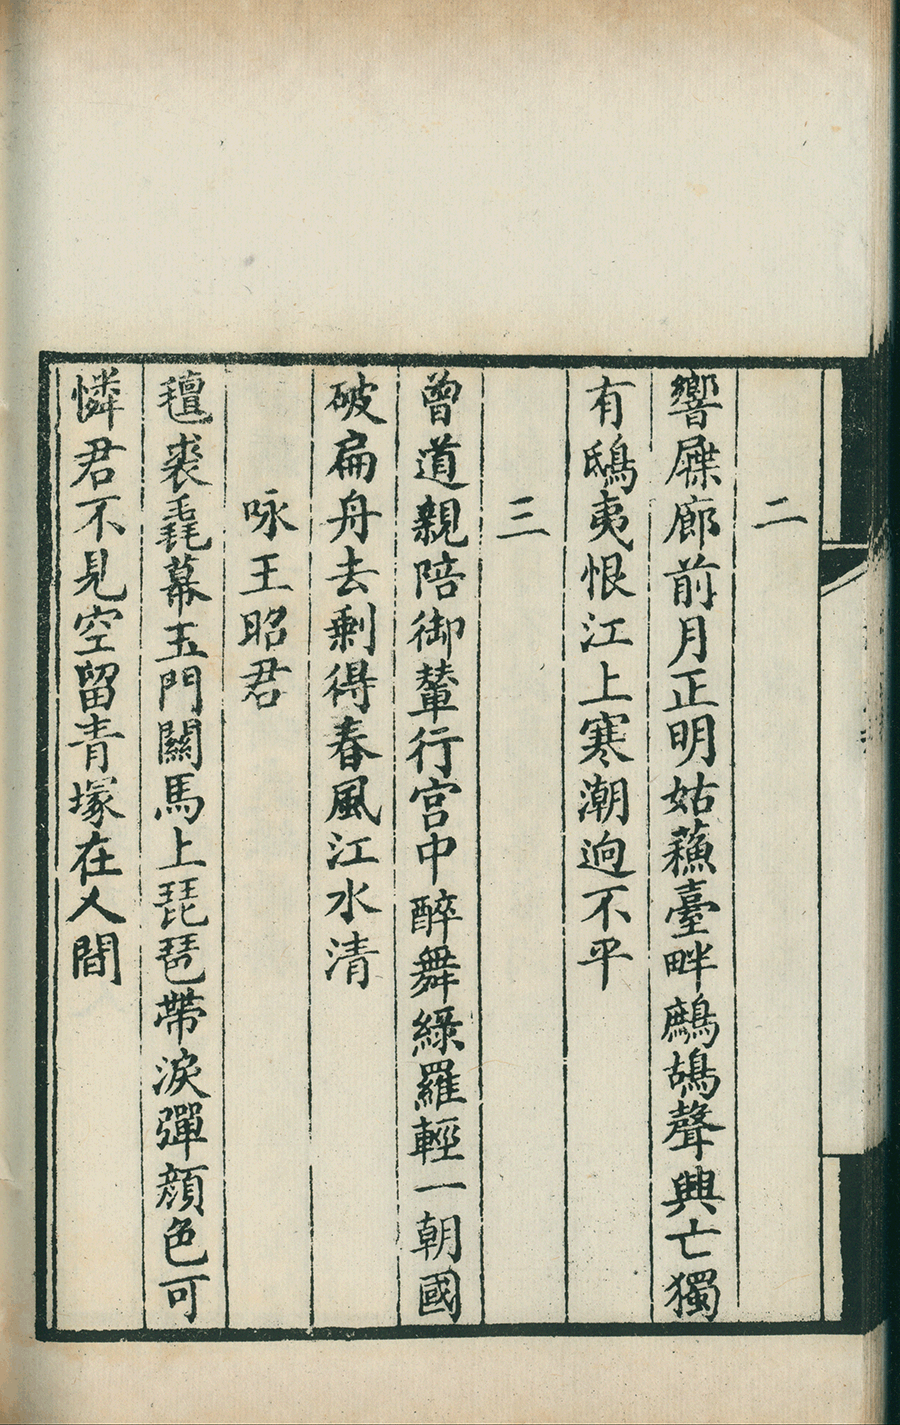 二
響屧廊前月正明姑蘓臺畔鷓鴣聲興亡獨
有鴟夷恨江上寒潮逈不平
三
曾道親陪御輦行宮中醉舞綠羅輕一朝國
破扁舟去剩得春風江水清
咏王昭君
氊裘毳幕玉門關馬上琵琶帶淚彈顏色可
憐君不見空留青塚在人間